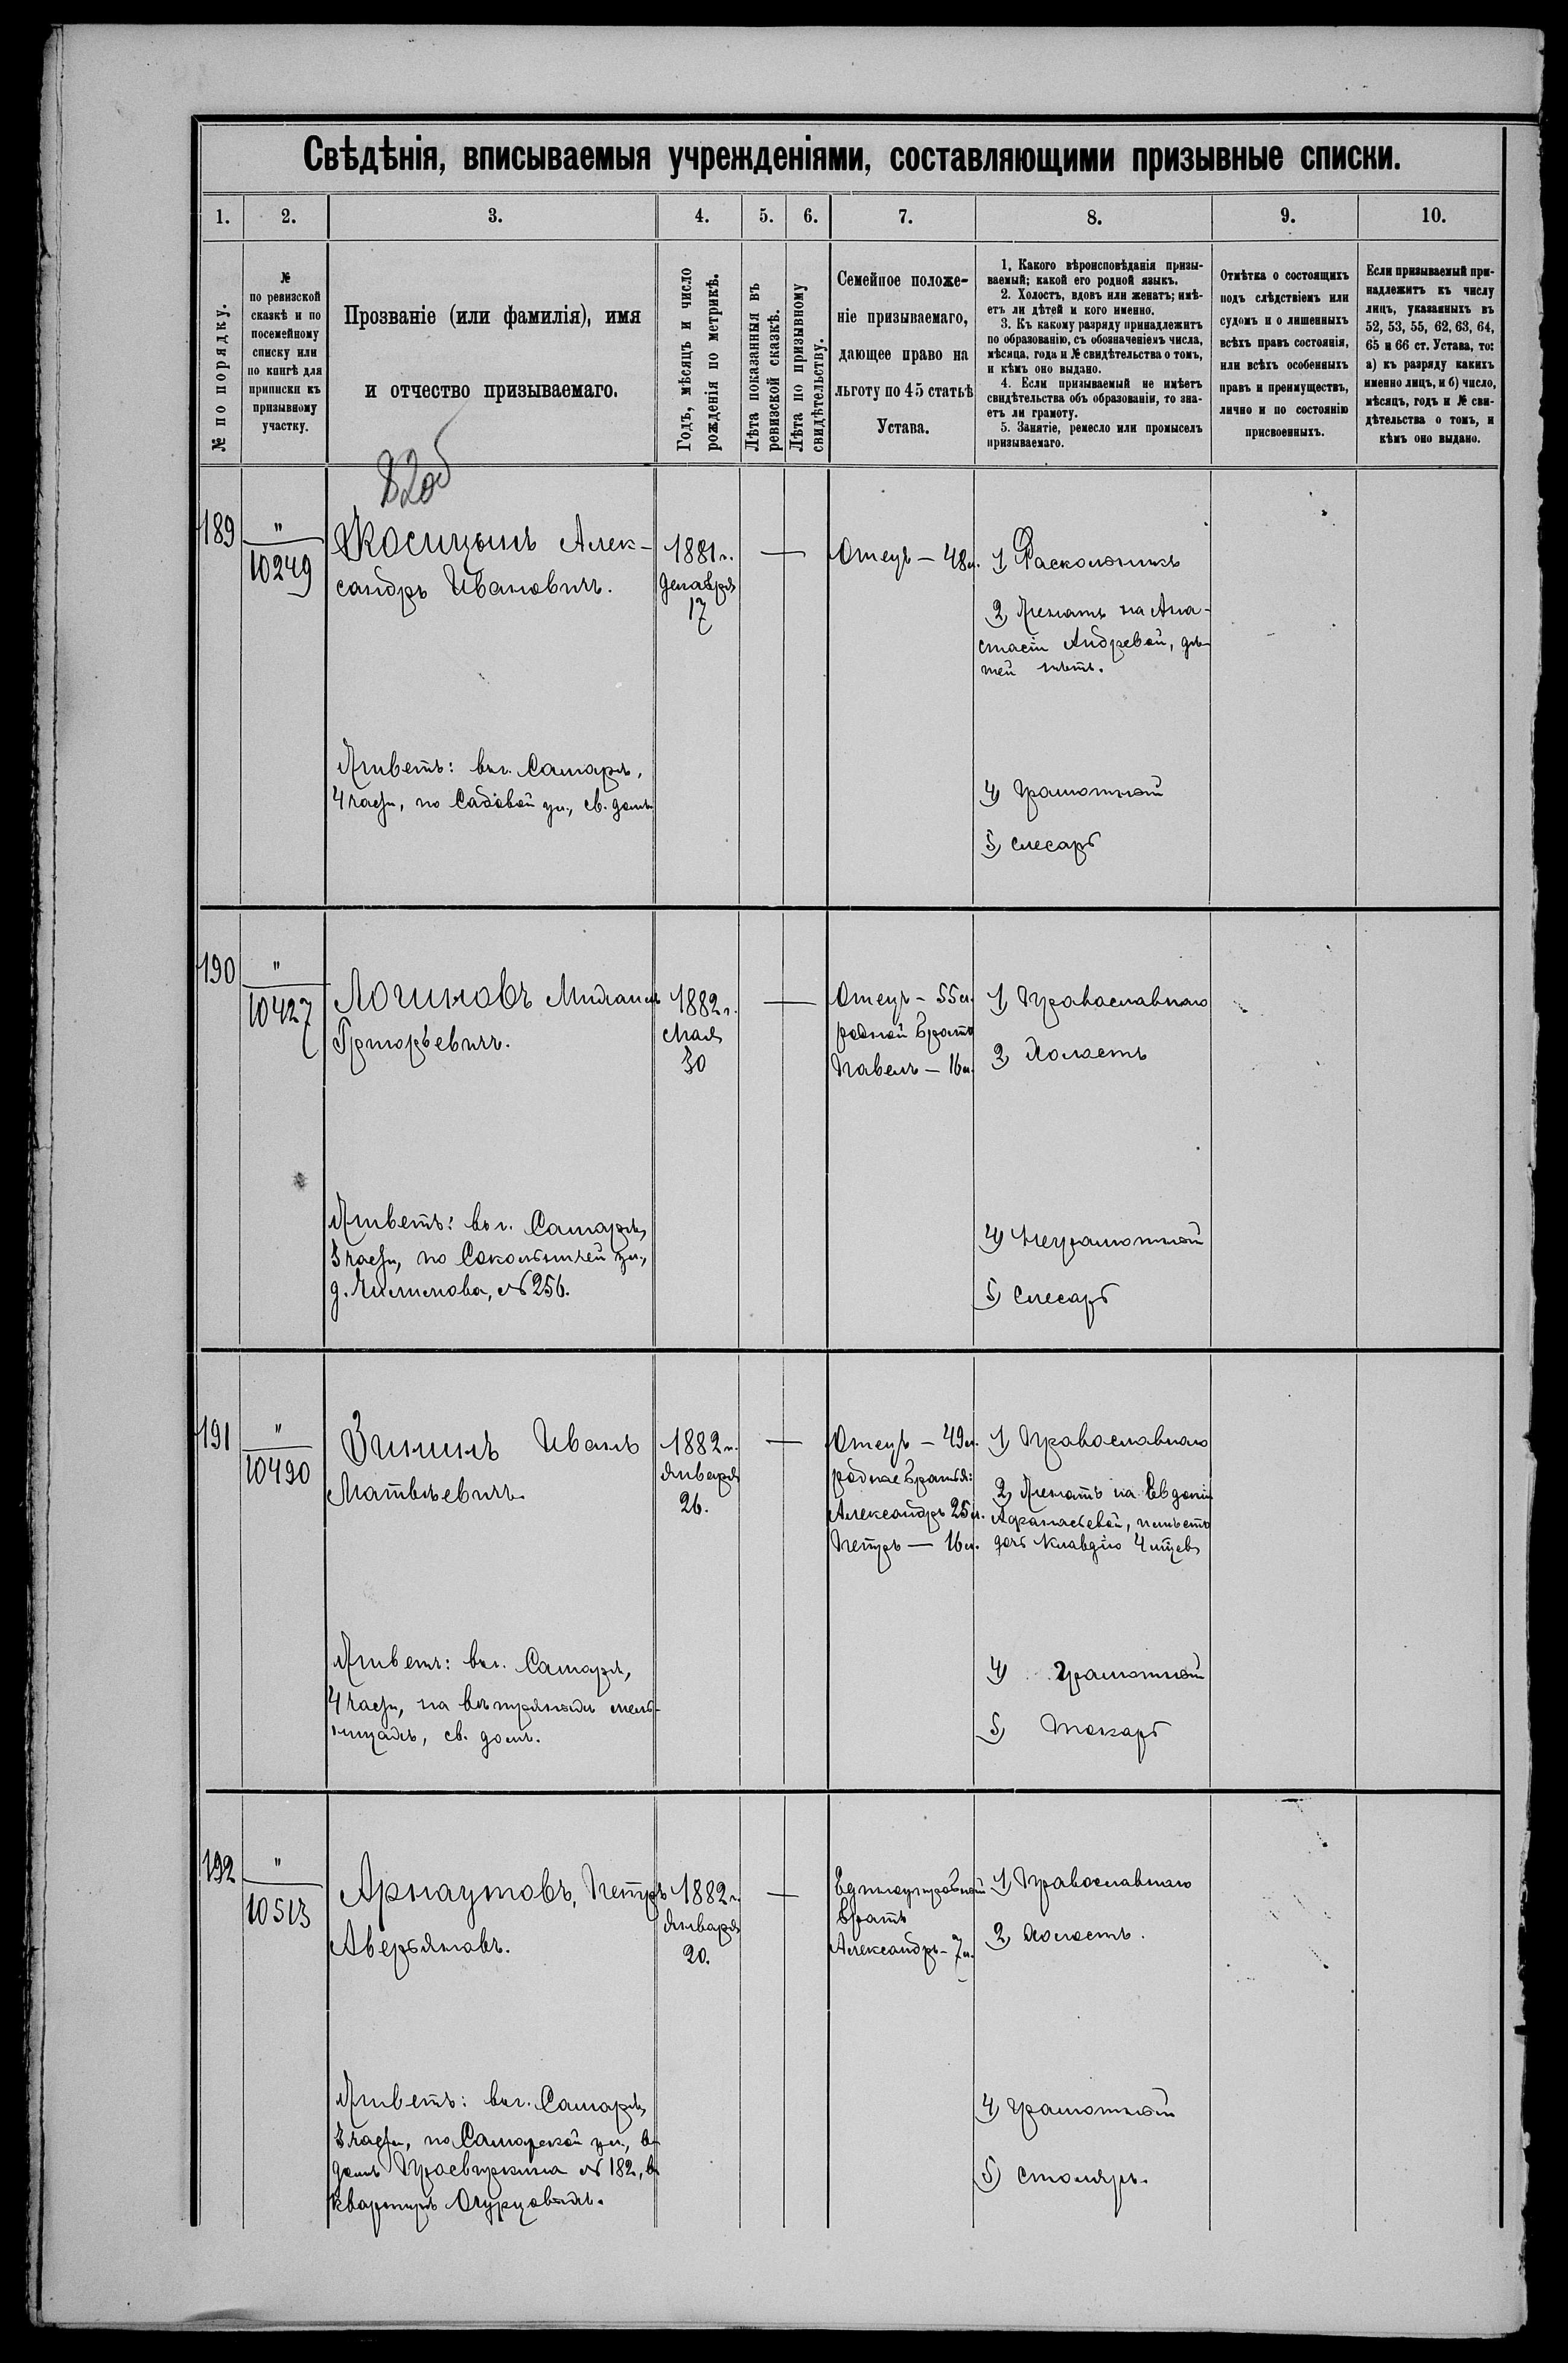 Свѣдѣнія, вписываемыя учрежденіями, составляющими призывные списки.
1. 2. 3. 4. 5. 6. 7. 8. 9. 10.
№ по порядку.
№
по ревизской
сказкѣ и по
посемейному
списку или
по книгѣ для
приписки къ
призывному
участку.
Прозваніе (или фамилія), имя
и отчество призываемаго.
Годъ, мѣсяцъ и число
рожденія по метрикѣ.
Лѣта показанныя въ
ревизской сказкѣ.
Лѣта по призывному
свидѣтельству.
Семейное положе-
ніе призываемаго,
дающее право на
льготу по 45 статьѣ
Устава.
1. Какого вѣроисповѣданія призы-
ваемый; какой его родной языкъ.
2. Холостъ, вдовъ или женатъ; имѣ-
етъ ли дѣтей и кого именно.
3. Къ какому разряду принадлежитъ
по образованію, съ обозначеніемъ числа,
мѣсяца, года и № свидѣтельства о томъ,
и кѣмъ оно выдано.
4. Если призываемый не имѣетъ
свидѣтельства объ образованіи, то зна-
етъ ли грамоту.
5. Занятіе, ремесло или промыселъ
призываемаго.
Отмѣтка о состоящихъ
подъ слѣдствіемъ или
судомъ и о лишенныхъ
всѣхъ правъ состоянія,
или всѣхъ особенныхъ
правъ и преимуществъ,
лично и по состоянію
присвоенныхъ.
Если призываемый при-
надлежитъ къ числу
лицъ, указанныхъ въ
52, 53, 55, 62, 63, 64,
65 и 66 ст. Устава, то:
а) къ разряду какихъ
именно лицъ, и б) число,
мѣсяцъ, годъ и № сви-
дѣтельства о томъ, и
кѣмъ оно выдано.
189
"
10249
Косицынъ Алек-
сандръ Ивановичъ.
Живетъ: въ г. Самарѣ,
4 части, по Садовой ул., св. домъ
1881 г.
декабря
17
—
Отецъ — 48 л.
1) Раскольникъ
2) Женатъ на Ана-
стасіи Андреевой, дѣ-
тей нѣтъ.
4) Грамотный
5) Слесарь
190
"
10427
Логиновъ Михаилъ
Григорьевичъ.
Живетъ: въ г. Самарѣ,
3 части, по Сокольничей ул.,
№ 256.
1882 г.
Мая
30
—
Отецъ — 55 л.
родной братъ
Павелъ — 16 л.
1) Православнаго
2) Холостъ
4) Неграмотный
5) Слесарь
191
"
10490
Зининъ Иванъ
Матвѣевичъ.
Живетъ: въ г. Самарѣ,
4 части, на вѣтряныхъ мель-
ницахъ, св. домъ.
1882 г.
Января
26.
—
Отецъ — 49 л.
родные братья:
Александръ 25 л.
Петръ — 16 л.
1) Православнаго
2) Женатъ на Евдокіи
Афанасьевой, имѣетъ
дочь Клавдію 4 мѣсяцевъ
4) Грамотный
5) Токарь
192
"
10513
Арнаутовъ, Петръ
Аверьяновъ.
Живетъ: въ г. Самарѣ,
3 части, по Самарской ул., въ
домѣ Просвиркина № 182, въ
квартирѣ Огурцовыхъ.
1882 г.
Января
20.
—
Единоутробный
братъ
Александръ — 7 л.
1) Православнаго
2) Холостъ.
4) Грамотный
5) Столяръ.